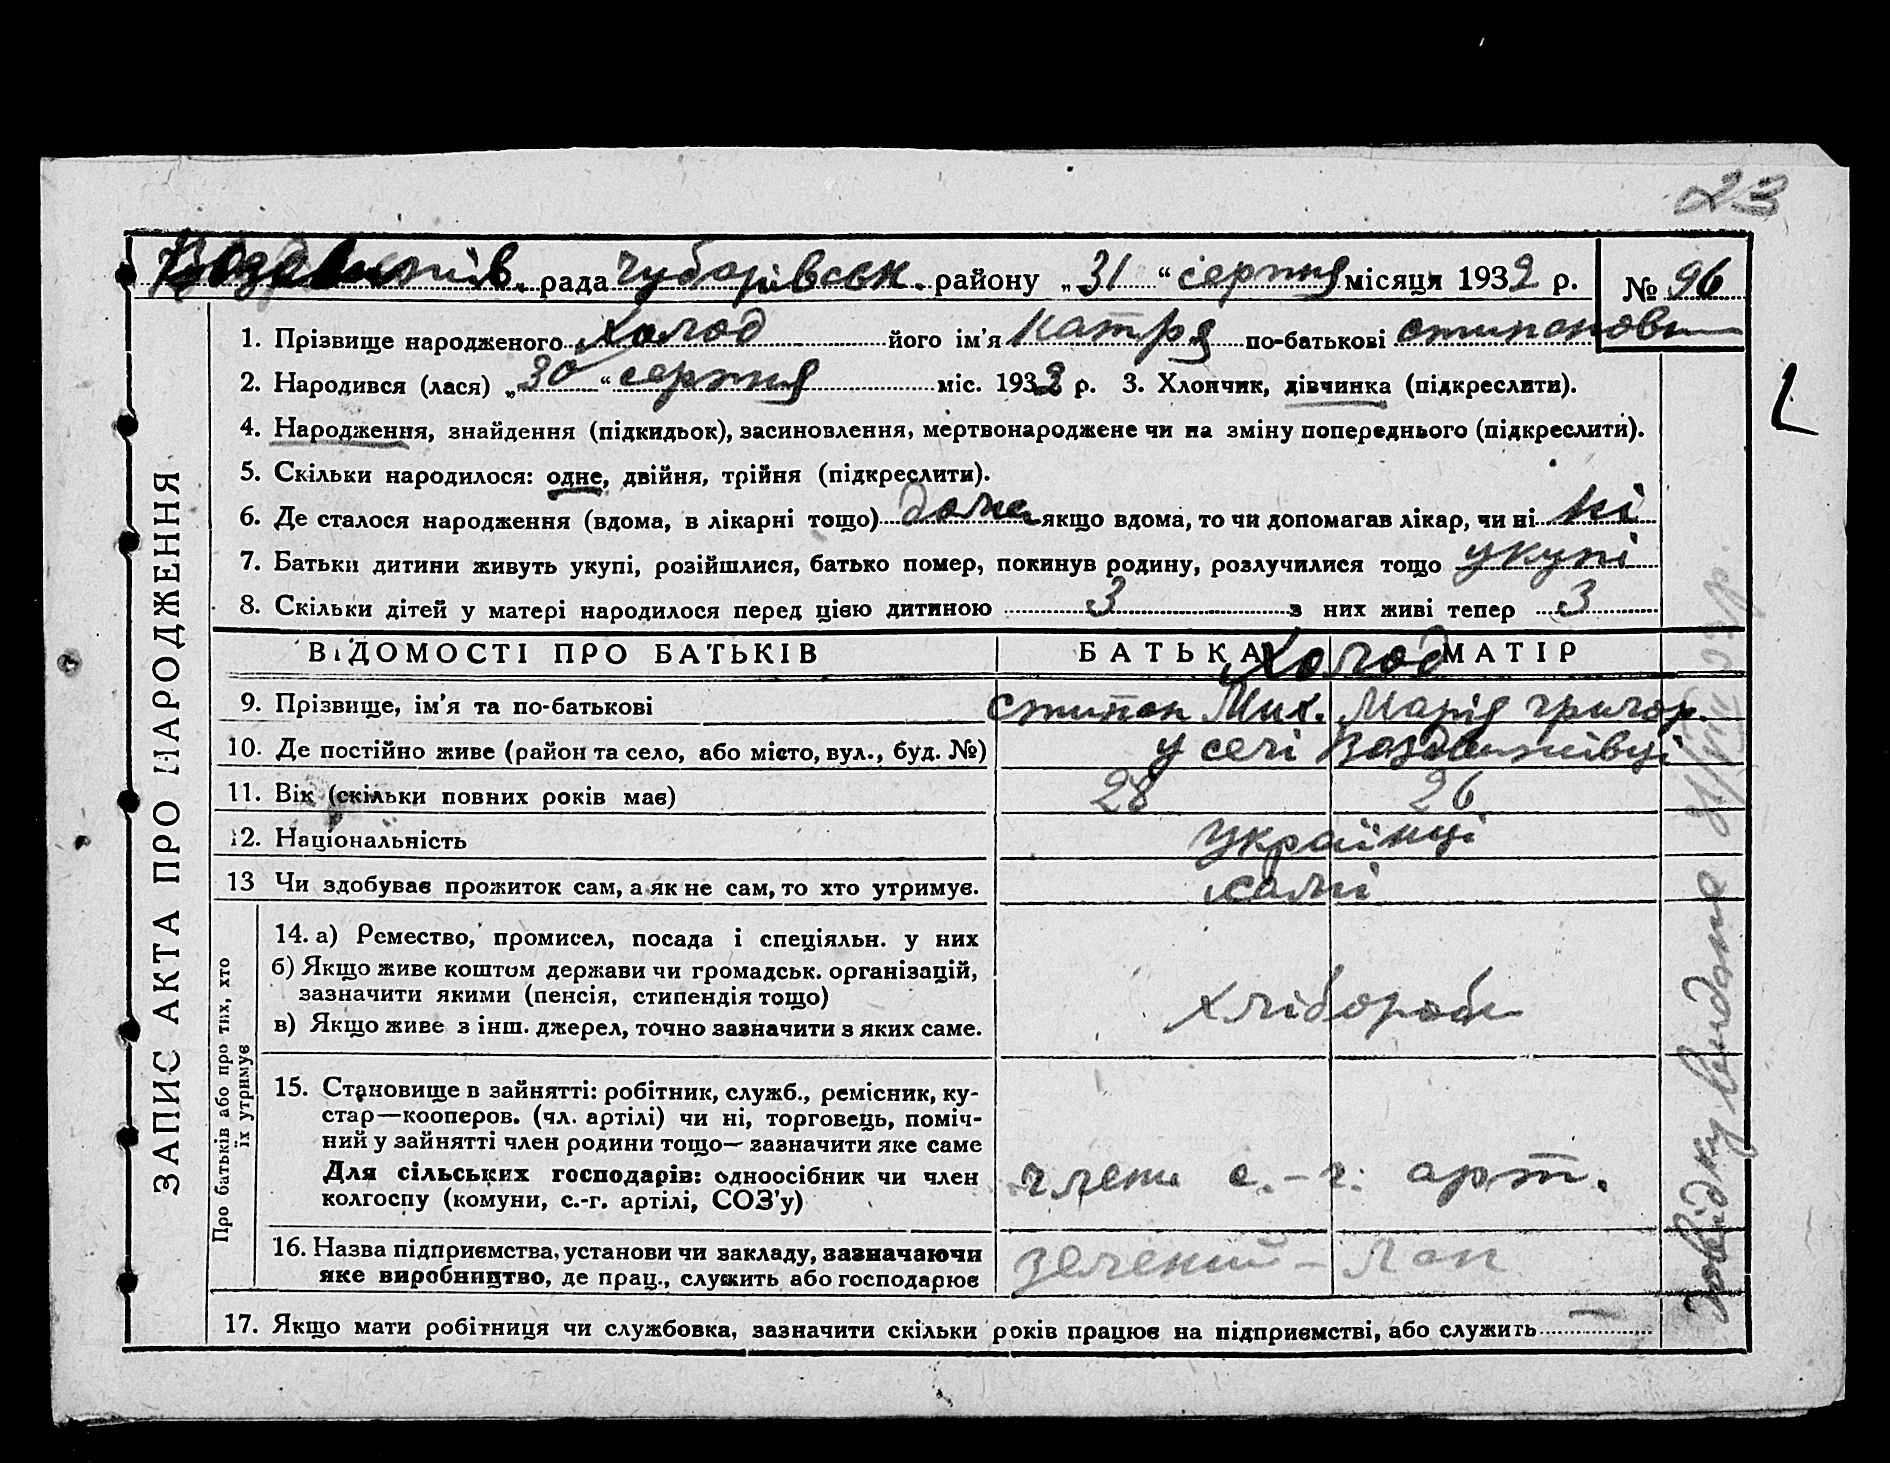 23
Воздвижів. рада Чубарівськ. району „31“ серпня місяця 1932 р. № 96
1. Прізвище народженого Холод його ім'я Катря по-батькові
2. Народився (лася) „30“ серпня міс. 1932 р. 3. Хлопчик, дівчинка (підкреслити).
4. Народження, знайдення (підкидьок), засиновлення, мертвонароджене чи на зміну попереднього (підкреслити).
5. Скільки народилося: одне, двійня, трійня (підкреслити).
6. Де сталося народження (вдома, в лікарні тощо) дома якщо вдома, то чи допомагав лікар, чи ні ні
7. Батьки дитини живуть укупі, розійшлися, батько помер, покинув родину, розлучилися тощо укупі
8. Скільки дітей у матері народилося перед цією дитиною 3 з них живі тепер 3
ВІДОМОСТІ ПРО БАТЬКІВ БАТЬКА Холод МАТІР
9. Прізвище, ім'я та по-батькові Стипан Мих. Марія Григор.
10. Де постійно живе (район та село, або місто, вул., буд. №) у селі Воздвижівці
11. Вік (скільки повних років має) 28 26
12. Національність Українці
13 Чи здобуває прожиток сам, а як не сам, то хто утримує. самі
14. а) Ремество, промисел, посада і спеціяльн. у них
б) Якщо живе коштом держави чи громадськ. організацій,
зазначити якими (пенсія, стипендія тощо)
в) Якщо живе з інш. джерел, точно зазначити з яких саме.
хлібороби
15. Становище в зайнятті: робітник, служб., ремісник, ку-
стар—кооперов. (чл. артілі) чи ні, торговець, поміч-
ний у зайнятті член родини тощо— зазначити яке саме
Для сільських господарів: одноосібник чи член
колгоспу (комуни, с.-г. артілі, СОЗ'у)
члени с.-г. арт.
16. Назва підприємства, установи чи закладу, зазначаючи
яке виробництво, де прац., служить або господарює
зелений – лан
17. Якщо мати робітниця чи службовка, зазначити скільки років працює на підприємстві, або служить —
ЗАПИС АКТА ПРО НАРОДЖЕННЯ
Про батьків або про тих, хто
їх утримує
Довідку видано